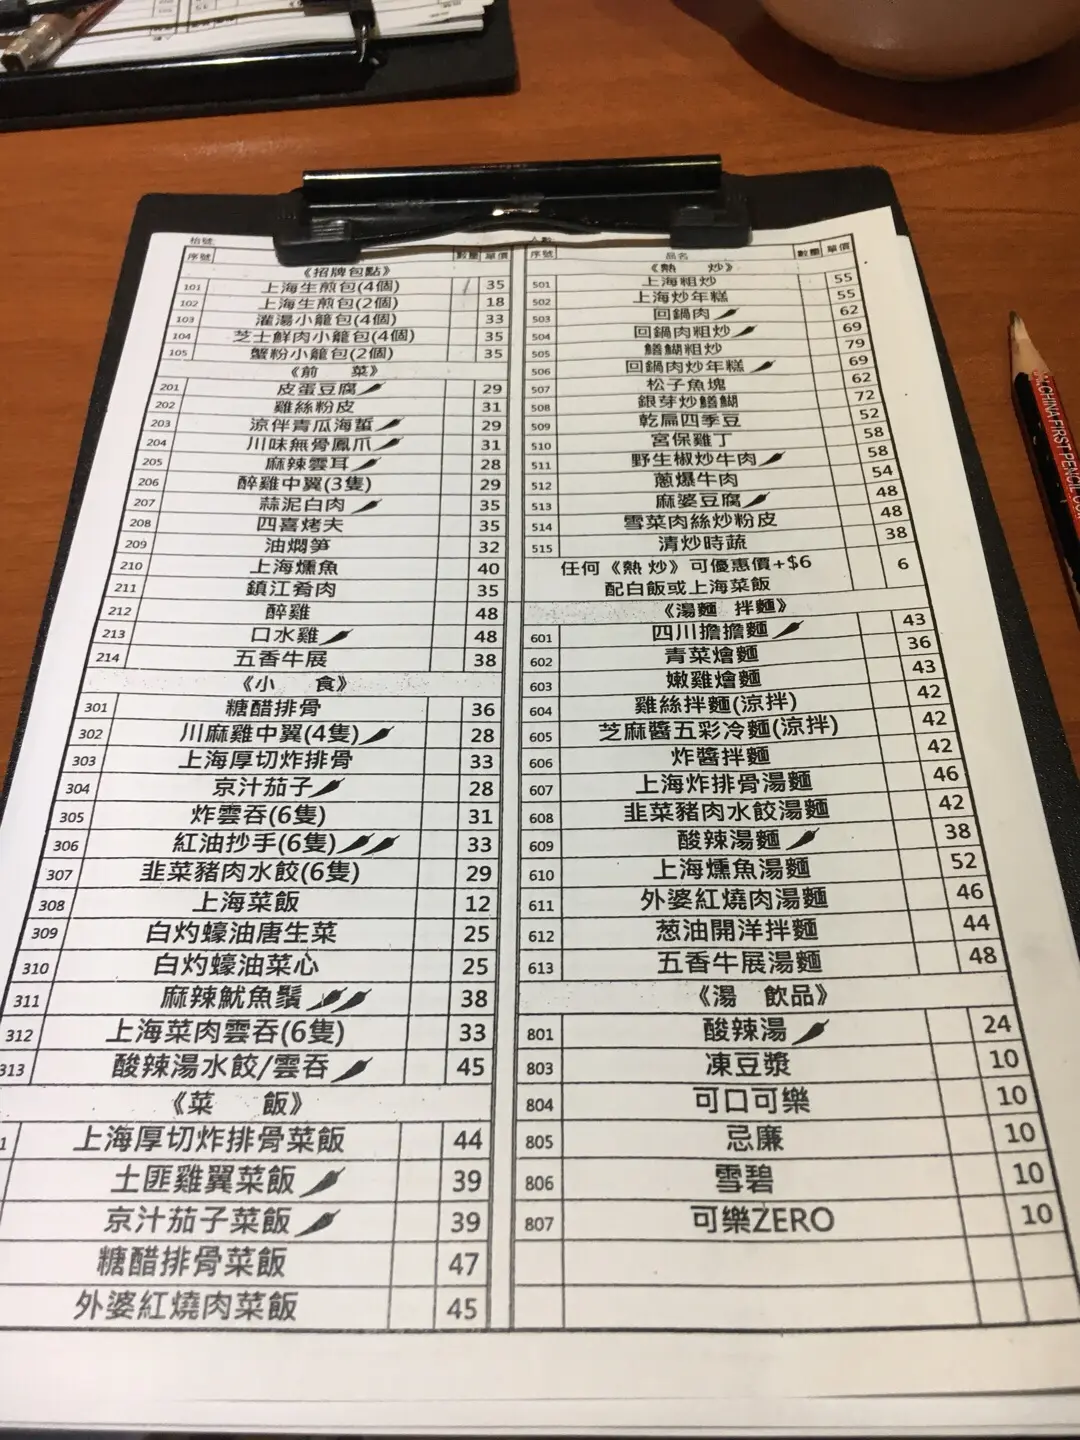 枱號:
序號 數量 單價
《招牌包點》
101 上海生煎包(4個) 35
102 上海生煎包(2個) 18
103 灌湯小籠包(4個) 33
104 芝士鮮肉小籠包(4個) 35
105 蟹粉小籠包(2個) 35
《前 菜》
201 皮蛋豆腐 29
202 雞絲粉皮 31
203 涼伴青瓜海蜇 29
204 川味無骨鳳爪 31
205 麻辣雲耳 28
206 醉雞中翼(3隻) 29
207 蒜泥白肉 35
208 四喜烤夫 35
209 油燜笋 32
210 上海燻魚 40
211 鎮江肴肉 35
212 醉雞 48
213 口水雞 48
214 五香牛展 38
《小 食》
301 糖醋排骨 36
302 川麻雞中翼(4隻) 28
303 上海厚切炸排骨 33
304 京汁茄子 28
305 炸雲吞(6隻) 31
306 紅油抄手(6隻) 33
307 韭菜豬肉水餃(6隻) 29
308 上海菜飯 12
309 白灼蠔油唐生菜 25
310 白灼蠔油菜心 25
311 麻辣魷魚鬚 38
312 上海菜肉雲吞(6隻) 33
313 酸辣湯水餃/雲吞 45
《菜 飯》
1 上海厚切炸排骨菜飯 44
土匪雞翼菜飯 39
京汁茄子菜飯 39
糖醋排骨菜飯 47
外婆紅燒肉菜飯 45
人數:
序號 品名 數量 單價
《熱 炒》
501 上海粗炒 55
502 上海炒年糕 55
503 回鍋肉 62
504 回鍋肉粗炒 69
505 鱔餬粗炒 79
506 回鍋肉炒年糕 69
507 松子魚塊 62
508 銀芽炒鱔餬 72
509 乾扁四季豆 52
510 宮保雞丁 58
511 野生椒炒牛肉 58
512 蔥爆牛肉 54
513 麻婆豆腐 48
514 雪菜肉絲炒粉皮 48
515 清炒時蔬 38
任何《熱 炒》可優惠價+$6 6
配白飯或上海菜飯
《湯麵 拌麵》
601 四川擔擔麵 43
602 青菜燴麵 36
603 嫩雞燴麵 43
604 雞絲拌麵(涼拌) 42
605 芝麻醬五彩冷麵(涼拌) 42
606 炸醬拌麵 42
607 上海炸排骨湯麵 46
608 韭菜豬肉水餃湯麵 42
609 酸辣湯麵 38
610 上海燻魚湯麵 52
611 外婆紅燒肉湯麵 46
612 葱油開洋拌麵 44
613 五香牛展湯麵 48
《湯 飲品》
801 酸辣湯 24
803 凍豆漿 10
804 可口可樂 10
805 忌廉 10
806 雪碧 10
807 可樂ZERO 10
CHINA FIRST PENCIL CO.